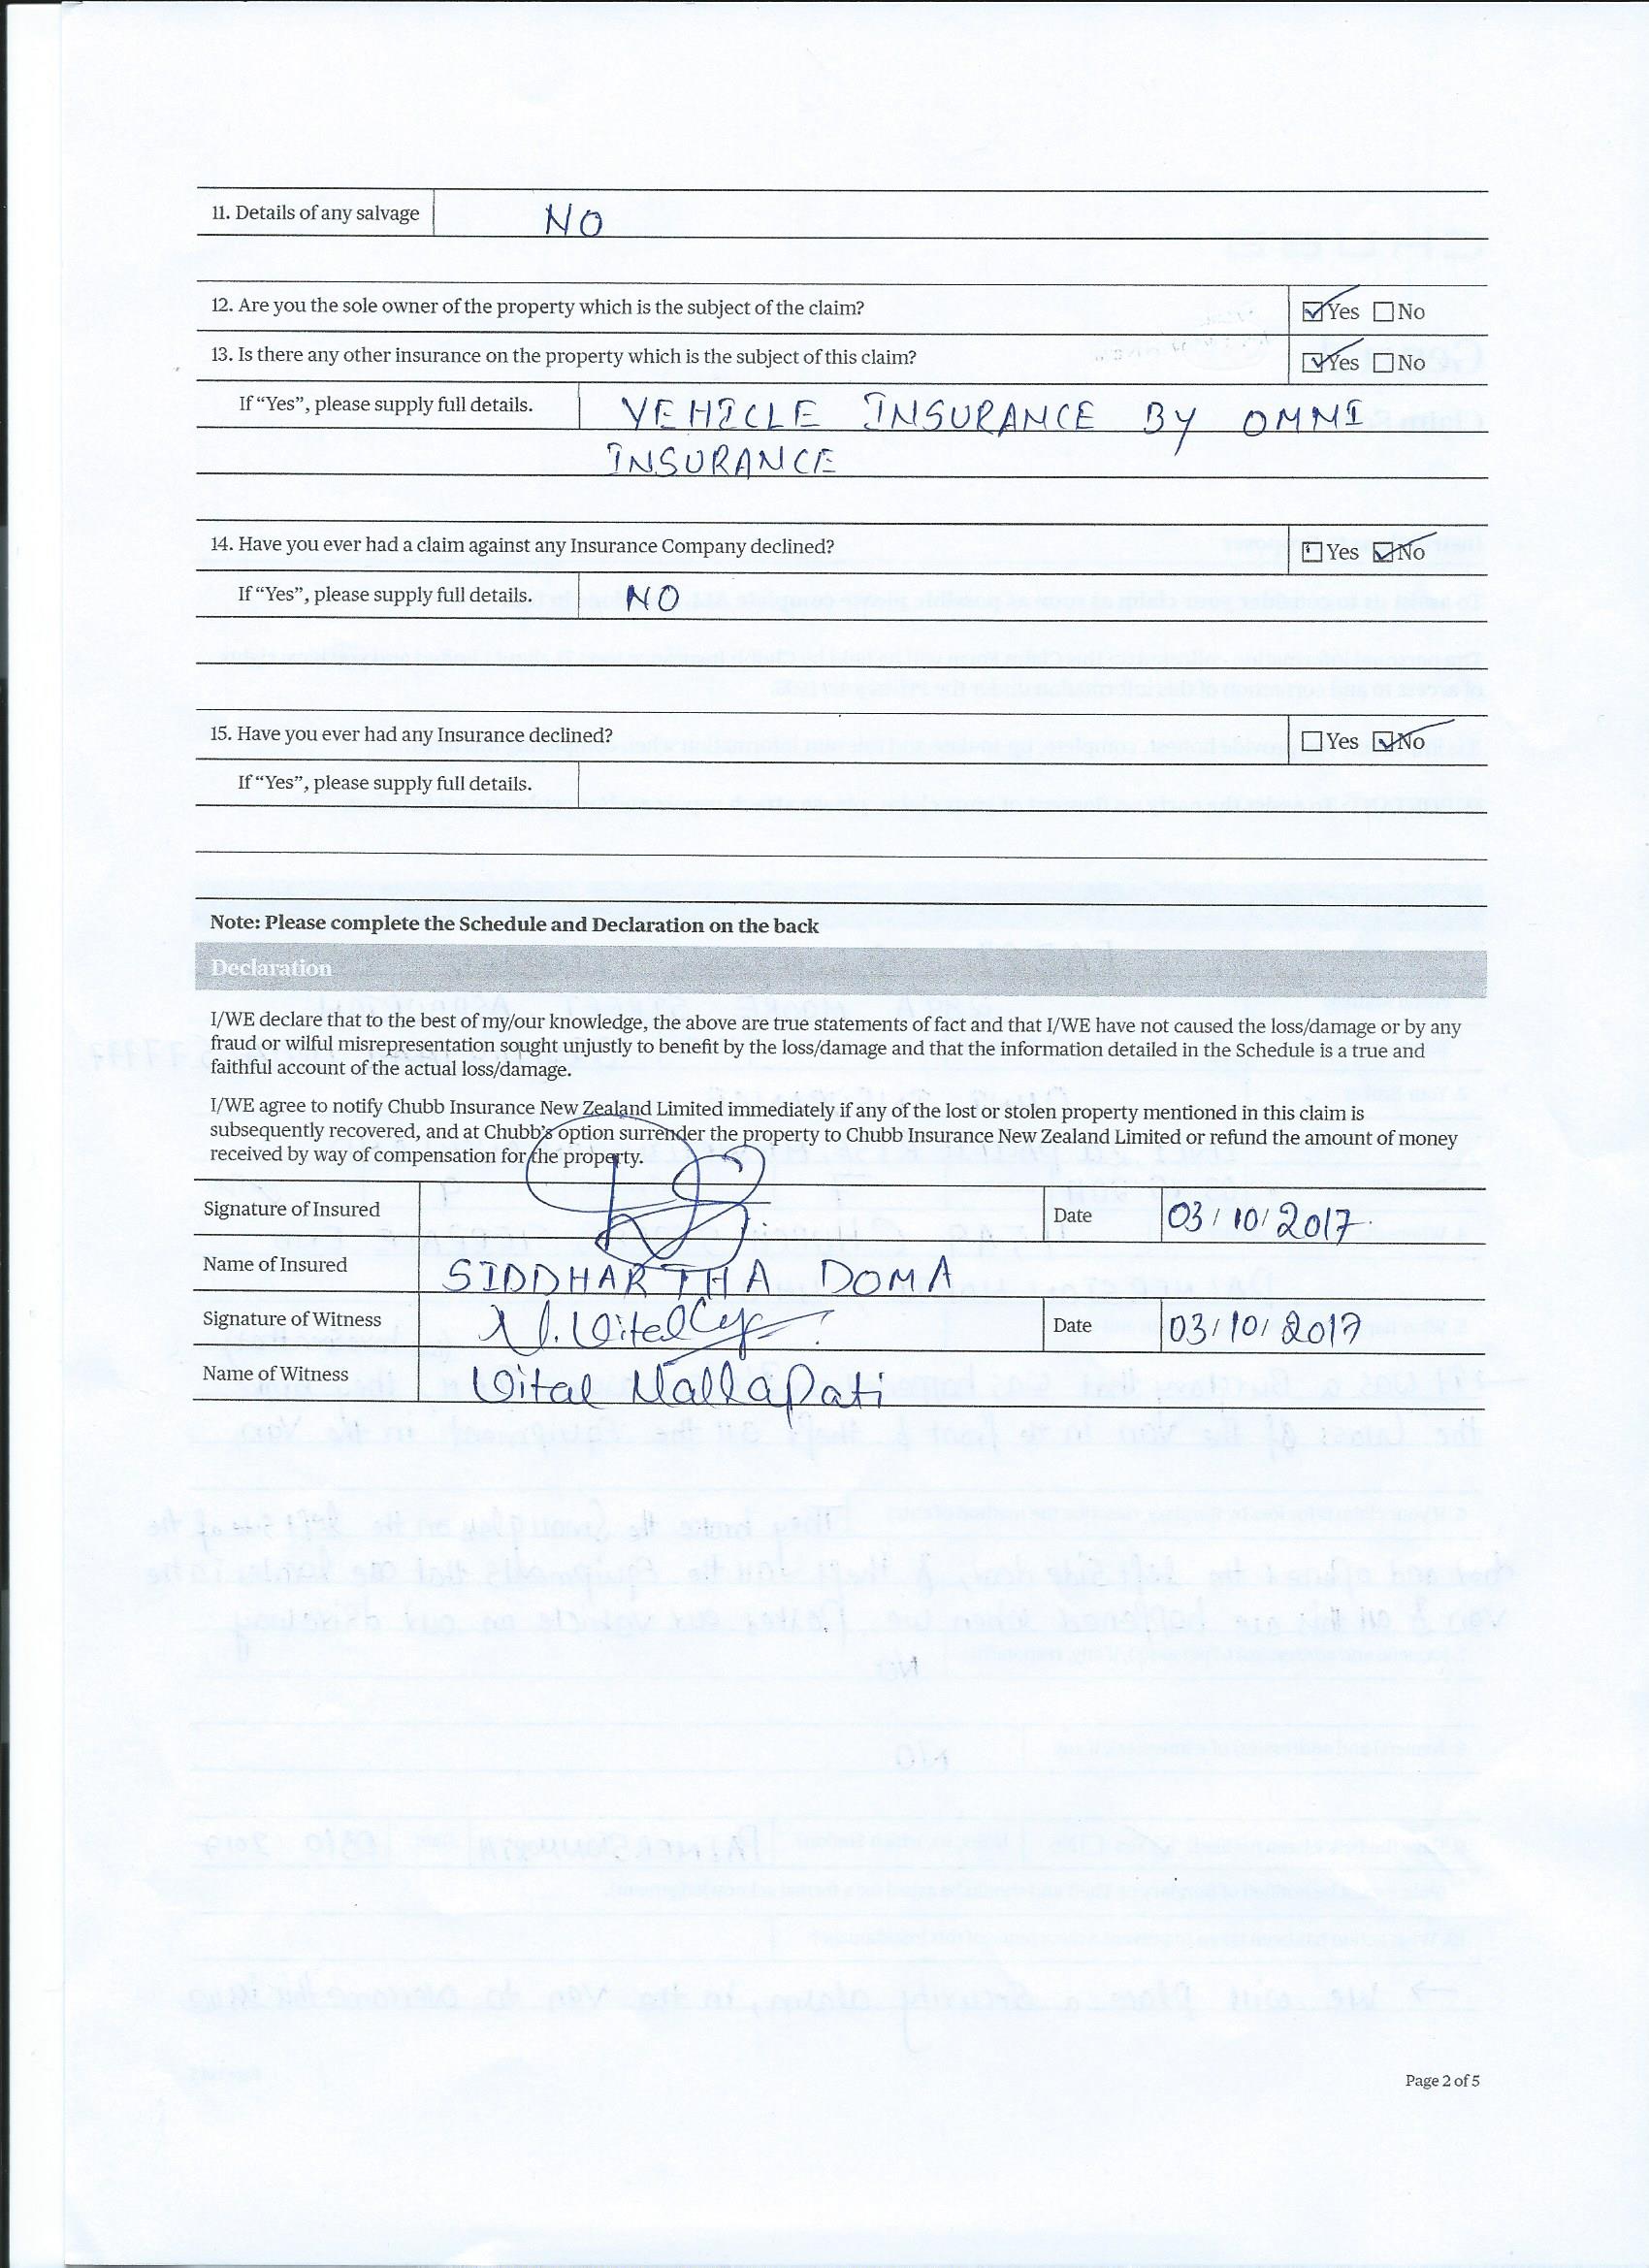 11. Details of any salvage NO
12. Are you the sole owner of the property which is the subject of the claim? Yes No
13. Is there any other insurance on the property which is the subject of this claim? Yes No
If “Yes”, please supply full details. VEHICLE INSURANCE BY OMNI
INSURANCE
14. Have you ever had a claim against any Insurance Company declined? Yes No
If “Yes”, please supply full details. NO
15. Have you ever had any Insurance declined? Yes No
If “Yes”, please supply full details.
Note: Please complete the Schedule and Declaration on the back
Declaration
I/WE declare that to the best of my/our knowledge, the above are true statements of fact and that I/WE have not caused the loss/damage or by any
fraud or wilful misrepresentation sought unjustly to benefit by the loss/damage and that the information detailed in the Schedule is a true and
faithful account of the actual loss/damage.
I/WE agree to notify Chubb Insurance New Zealand Limited immediately if any of the lost or stolen property mentioned in this claim is
subsequently recovered, and at Chubb’s option surrender the property to Chubb Insurance New Zealand Limited or refund the amount of money
received by way of compensation for the property.
Signature of Insured Date 03/10/2017
Name of Insured SIDDHARTHA DOMA
Signature of Witness Date 03/10/2017
Name of Witness Vital Mallapati
Page 2 of 5